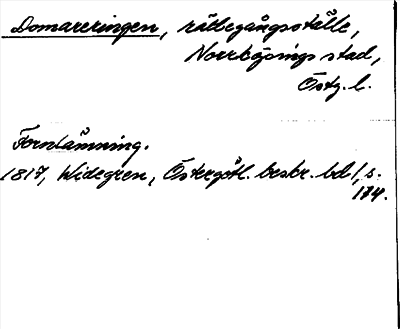 Domareringen, rättegångsställe,
Norrköpings stad,
Östg. l.
Fornlämning.
1817, Widegren, Östergötl. beskr. bd 1, s.
174.